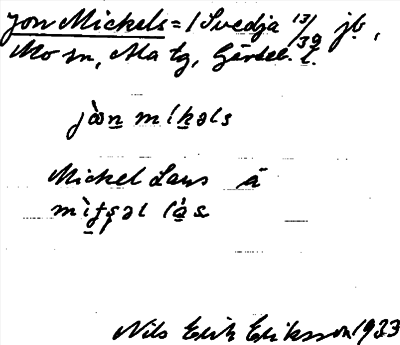 Jon Mickels = / Svedja 13/39 jb,
Mo sn, Ma tg, Gärdel. l.
jòn mikəls
Mickel Lars å
Nils Erik Eriksson 1933